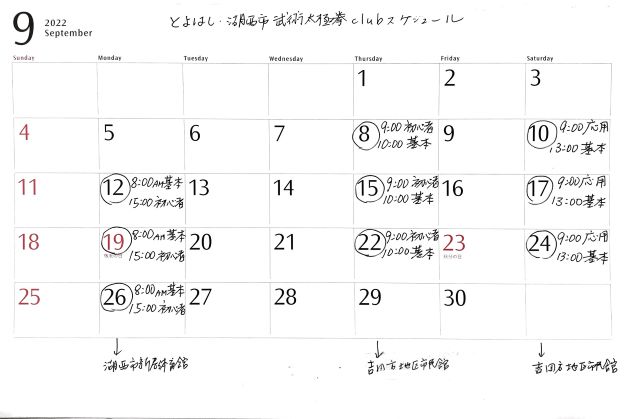 9 2022 September
とよはし・湖西市 武術太極拳 clubスケジュール
Sunday Monday Tuesday Wednesday Thursday Friday Saturday
1 2 3
4 5 6 7 8 9:00 初心者 10:00 基本 9 10 9:00 応用 13:00 基本
11 12 8:00AM 基本 15:00 初心者 13 14 15 9:00 初心者 10:00 基本 16 17 9:00 応用 13:00 基本
18 19 8:00AM 基本 15:00 初心者 敬老の日 20 21 22 9:00 初心者 10:00 基本 23 秋分の日 24 9:00 応用 13:00 基本
25 26 8:00AM 基本 15:00 初心者 27 28 29 30
湖西市新居体育館 吉田方地区市民館 吉田方地区市民館